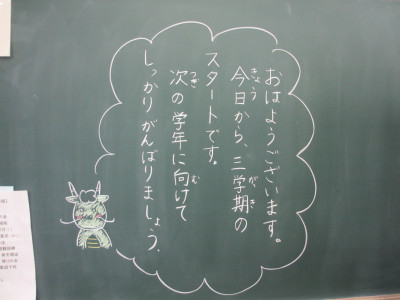 おはようございます。
今日から、三学期の
スタートです。
次の学年に向けて
しっかりがんばりましょう。